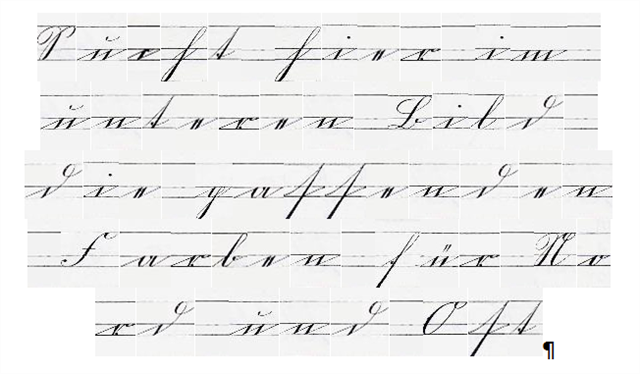 Sucht hier im
unteren Bild
die passenden
Farben für No
rd und Ost¶